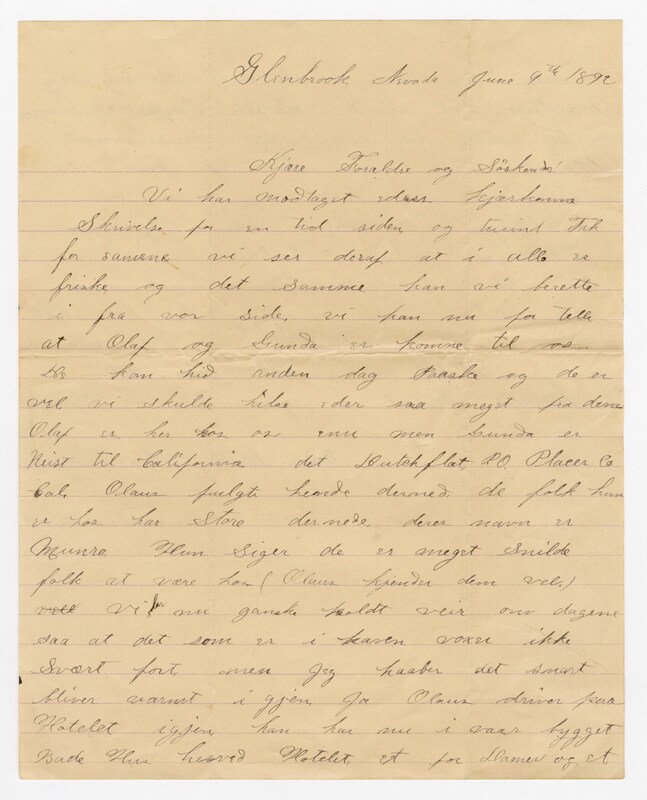 Glenbrook, Nevada June 9th 1892
Kjære Foraldre og Söskende!
Vi har modtaget eders kjærkomne
Skrivelse for en tid siden og Tak
for samme vi ser deraf at i alle er
friske og det samme kan vi berette
i fra vor side, vi kan nu for telle
at Olaf og Gunda er komne til os.
De kom hid anden dag Paaske og de er
vel vi skulde hilse eder saa meget fra dem
Olaf er her hos os enu men Gunda er
Reist til California det Dutchflat, P.O. Placer Co
Cal. Olaus fulgte hende derned. de folk hun
er hos har Store dernede, deres navn er
Munro. Hun Siger de er meget Snilde
folk at være hos (Olaus kjender dem vel,)
vi har nu ganske koldt veir om dagene
saa at det som er i haven voxer ikke
Svært fort, men Jeg haaber det snart
bliver varmt i gjen, Ja Olaus driver paa
Hotelet igjen han har nu i vaar bygget
Bade Hus hosved Hotelet et for Damer og et